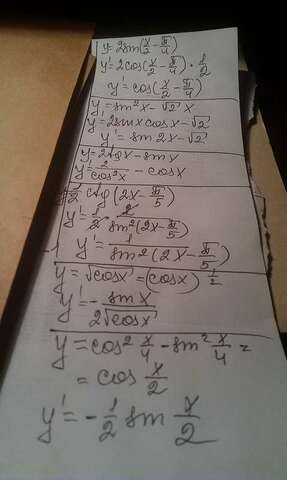 y=2sin(x/2 - π/4)
y'=2cos(x/2 - π/4)·1/2
y'=cos(x/2 - π/4)
y=sin²x-√2 x
y'=2sinx cosx-√2
y'=sin2x-√2
y=2tgx-sinx
y'=2/cos²x - cosx
1/2 ctg(2x-π/5)
y'=-1/2·2/sin²(2x-π/5)
y'=-1/sin²(2x-π/5)
y=√cosx=(cosx)^1/2
y'=-sinx/2√cosx
y=cos² x/4 - sin² x/4 =
=cos x/2
y'=-1/2 sin x/2